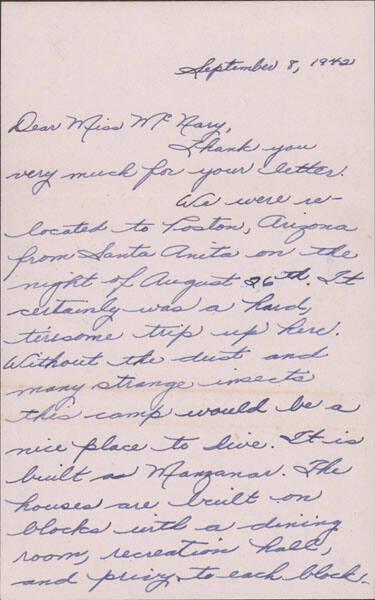 September 8, 1942
Dear Miss McNary,
Thank you
very much for your letter.
We were re-
located to Poston, Arizona
from Santa Anita on the
night of August 26th. It
certainly was a hard,
tiresome trip up here.
Without the dust and
many strange insects
this camp would be a
nice place to live. It is
built as Manzanar. The
houses are built on
blocks with a dining
room, recreation hall,
and privy to each block.